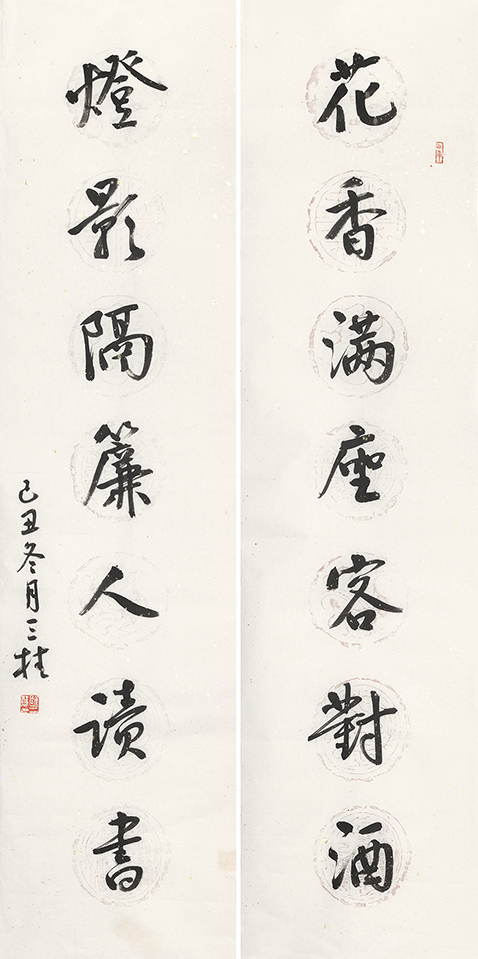 花香满座客對酒
燈影隔簾人读書
己丑冬月三桂